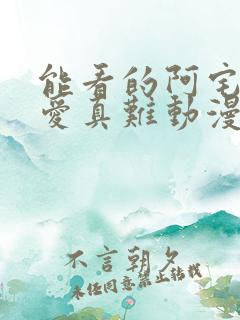 能看的阿宅
愛真難動漫
不言朝夕
未经同意禁止转载